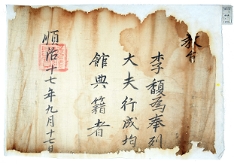 敎旨
李馥爲奉列
大夫行成均
館典籍者
順治十七年九月十七日